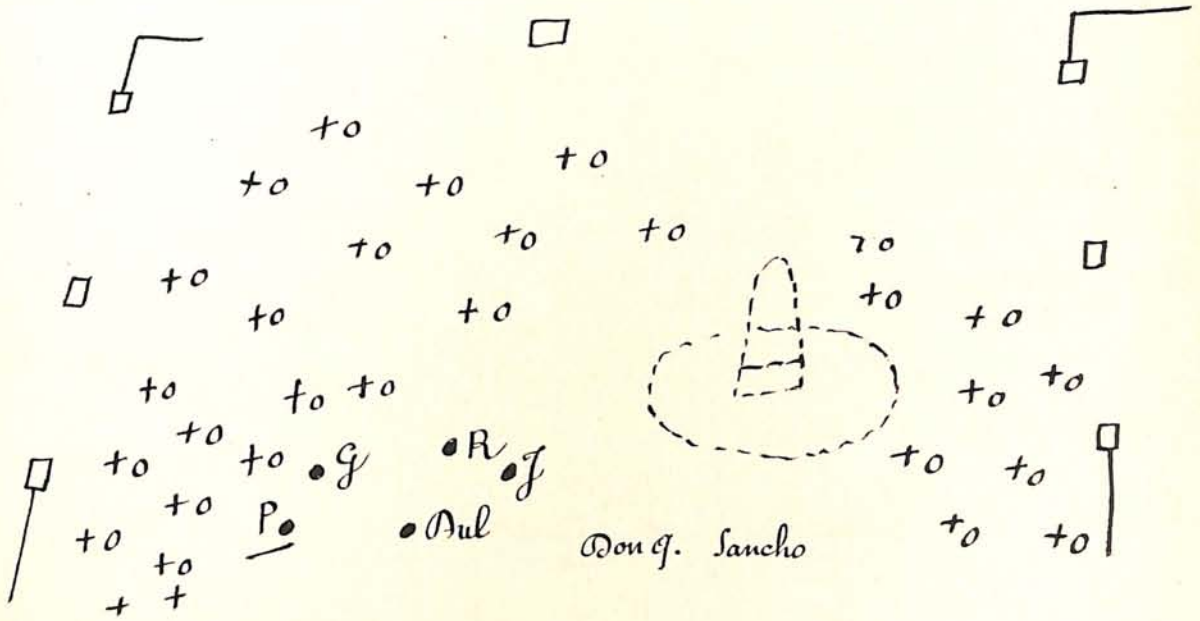 G
R
J
P.
Dul
Don q. Sancho